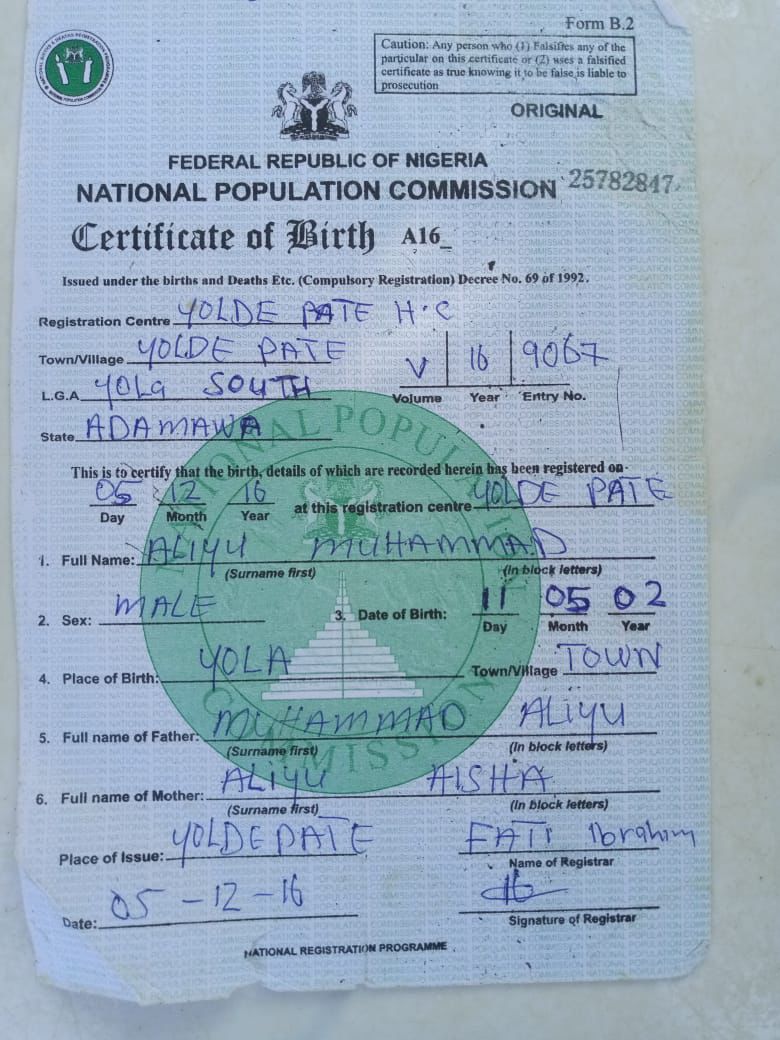 Form B.2
Caution: Any person who (1) Falsifies any of the
particular on this certificate or (2) uses a falsified
certificate as true knowing it to be false is liable to
prosecution
ORIGINAL
FEDERAL REPUBLIC OF NIGERIA
NATIONAL POPULATION COMMISSION 25782847
Certificate of Birth A16_
Issued under the births and Deaths Etc. (Compulsory Registration) Decree No. 69 of 1992.
Registration Centre YOLDE PATE H.C
Town/Village YOLDE PATE
V 16 9067
Volume Year Entry No.
L.G.A YOLa SOUTH
State ADAMAWA
This is to certify that the birth, details of which are recorded herein has been registered on-
05 12 16 at this registration centre YOLDE PATE
Day Month Year
1. Full Name: ALIYU MUHAMMAD
(Surname first) (In block letters)
2. Sex: MALE 3. Date of Birth: 11 05 02
Day Month Year
4. Place of Birth: YOLA Town/Village TOWN
5. Full name of Father: MUHAMMAD ALIYU
(Surname first) (In block letters)
6. Full name of Mother: ALIYU AISHA
(Surname first) (In block letters)
Place of Issue: YOLDE PATE FATI Ibrahim
Name of Registrar
Date: 05-12-16
Signature of Registrar
NATIONAL REGISTRATION PROGRAMME
NATIONAL POPULATION COMMISSION